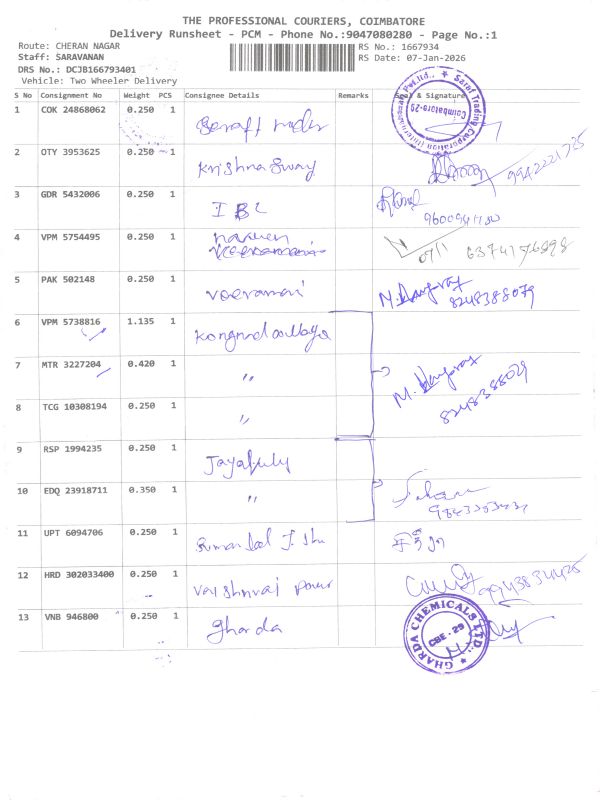 THE PROFESSIONAL COURIERS, COIMBATORE
Delivery Runsheet - PCM - Phone No.:9047080280 - Page No.:1
Route: CHERAN NAGAR
RS No.: 1667934
Staff: SARAVANAN
RS Date: 07-Jan-2026
DRS No.: DCJB166793401
Vehicle: Two Wheeler Delivery
S No Consignment No Weight PCS Consignee Details Remarks Seal & Signature
1 COK 24868062 0.250 1
Saraf Trading Corporation Pvt.Ltd.,
Coimbatore-29
2 OTY 3953625 0.250 1 Krishna Sway
9942221725
3 GDR 5432006 0.250 1
4 VPM 5754495 0.250 1 naveen
6374176898
5 PAK 502148 0.250 1 veeramani
8248388079
6 VPM 5738816 1.135 1
7 MTR 3227204 0.420 1 "
8248388079
8 TCG 10308194 0.250 1 "
9 RSP 1994235 0.250 1
10 EDQ 23918711 0.350 1 "
11 UPT 6094706 0.250 1
12 HRD 302033400 0.250 1
9943834425
13 VNB 946800 0.250 1 Gharda
GHARDA CHEMICALS LTD.,
CBE - 29